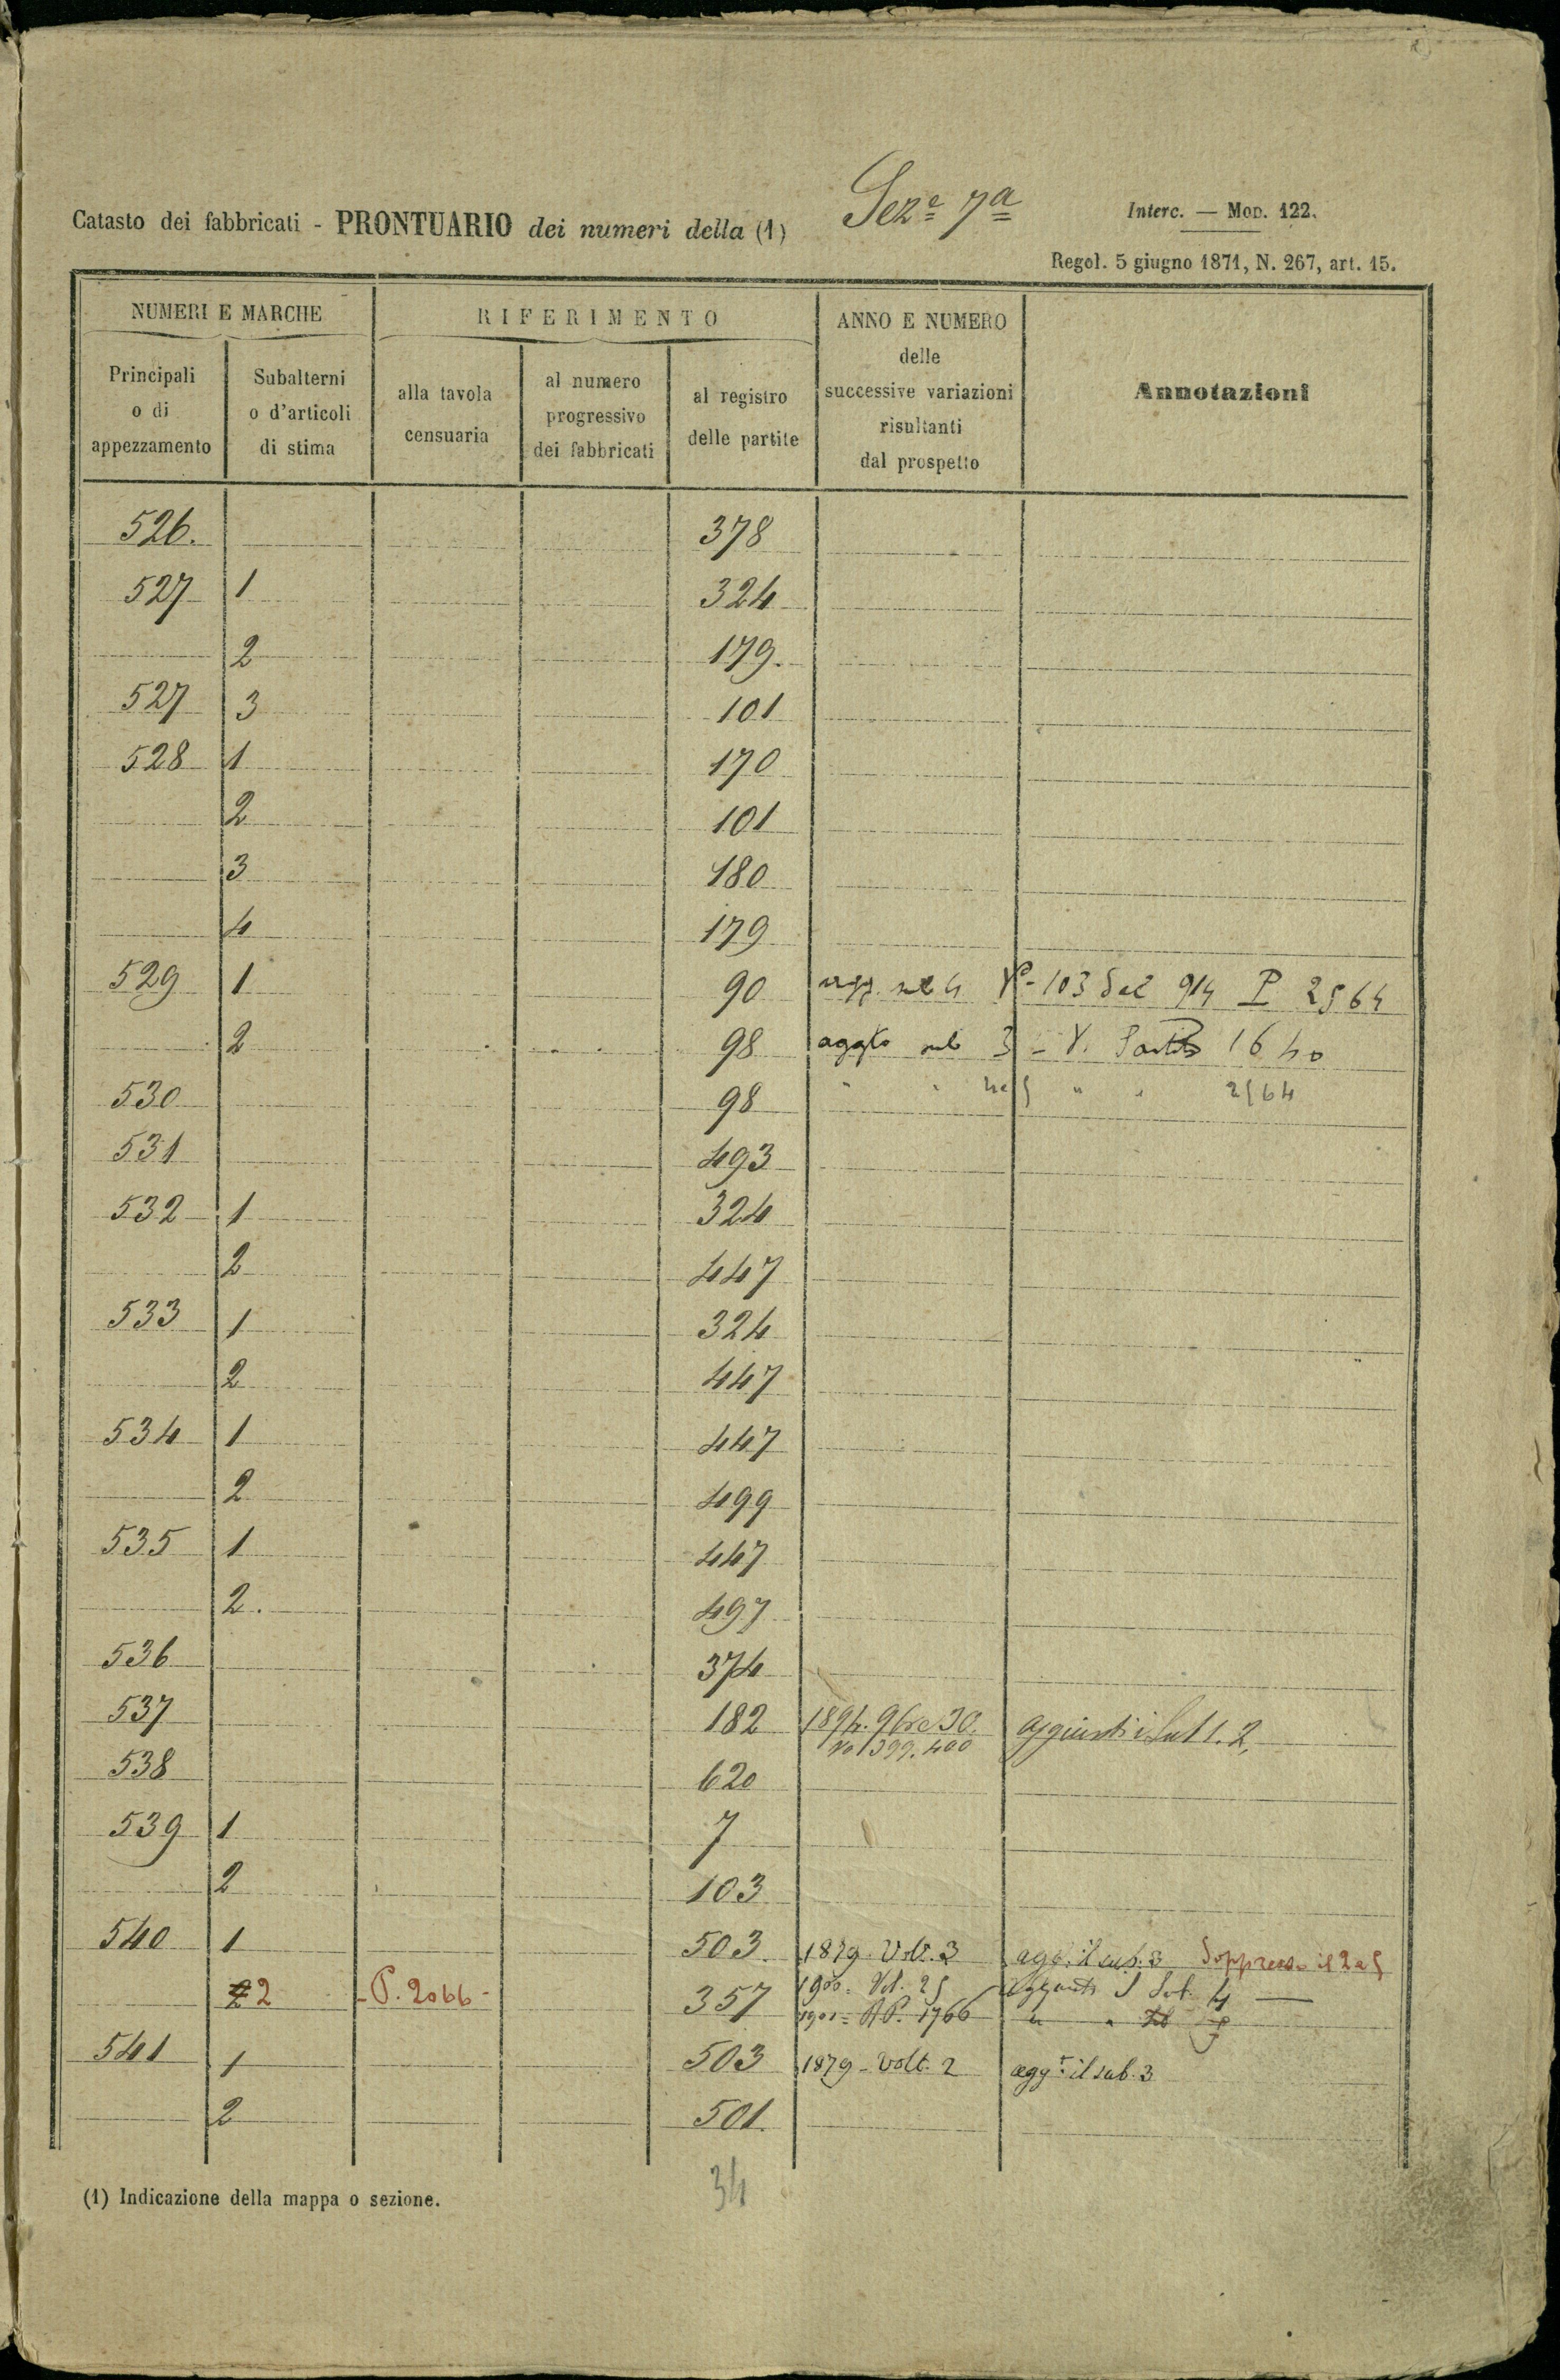 Catasto dei fabbricati - PRONTUARIO dei numeri della (1) Sez.e 7a
Interc. — Mod. 122.
Regol. 5 giugno 1871, N. 267, art. 15.
NUMERI E MARCHE RIFERIMENTO ANNO E NUMERO delle successive variazioni risultanti dal prospetto Annotazioni
Principali o di appezzamento Subalterni o d'articoli di stima alla tavola censuaria al numero progressivo dei fabbricati al registro delle partite
526. 378
527 1 324
2 179.
527 3 101
528 1 170
2 101
3 180
4 179
529 1 90 agg. sub 4 V- 103 del 914 P 2564
2 98 aggto sub 3 - V. Partita 1640
530 98 " " 4e5 " " 2564
531 493
532 1 324
2 447
533 1 324
2 447
534 1 447
2 499
535 1 447
2. 497
536 374
537 182 1894. 9bre 30. aggiunti i Sub 1. 2,
No 399. 400
538 620
539 1 7
2 103
540 1 503. 1879. Volt. 3 agg. il sub. 3 Soppresso il 2 e 5
1900= Vol. 25 aggiunto il Sub. 4 —
2 2 P. 2066- 357 1901= RP. 1766 " "
541 1 503 1879 - Volt. 2 aggt. il sub. 3
2 501.
(1) Indicazione della mappa o sezione.
34